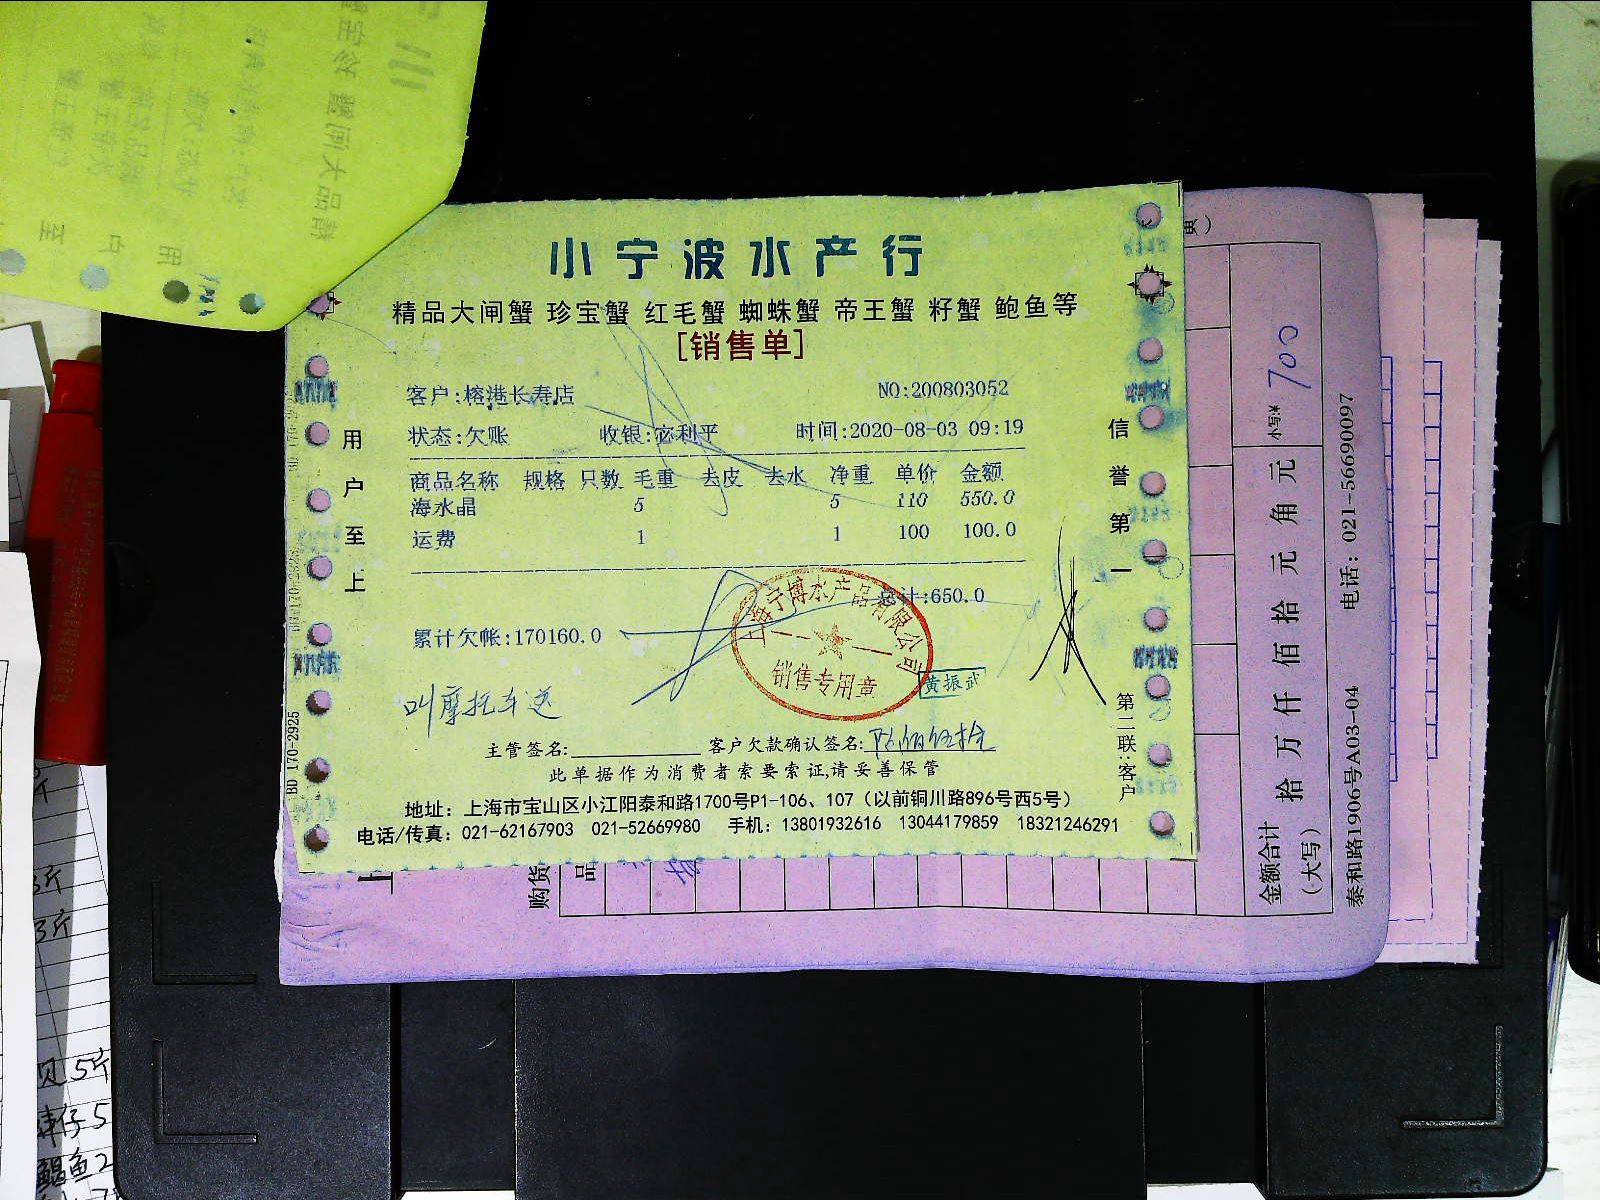 小宁波水产行
精品大闸蟹 珍宝蟹 红毛蟹 蜘蛛蟹 帝王蟹 籽蟹 鲍鱼等
[销售单]
客户:榕港长寿店 NO:200803052
状态:欠账 收银:宓利平 时间:2020-08-03 09:19
商品名称 规格 只数 毛重 去皮 去水 净重 单价 金额
海水晶 5 5 110 550.0
运费 1 1 100 100.0
总计:650.0
累计欠帐:170160.0
上海宁博水产品有限公司
销售专用章
黄振武
叫摩托车送
主管签名: 客户欠款确认签名:陆佰伍拾
此单据作为消费者索要索证,请妥善保管
地址：上海市宝山区小江阳泰和路1700号P1-106、107（以前铜川路896号西5号）
电话/传真：021-62167903 021-52669980 手机：13801932616 13044179859 18321246291
用户至上
信誉第一
第二联:客户
BD 170-2925
购货
品
金额合计
（大写）
拾 万 仟 佰 拾 元 角 元
小写:¥ 700
泰和路1906号A03-04 电话：021-56690097
3斤
贝 5斤
鲳鱼 2